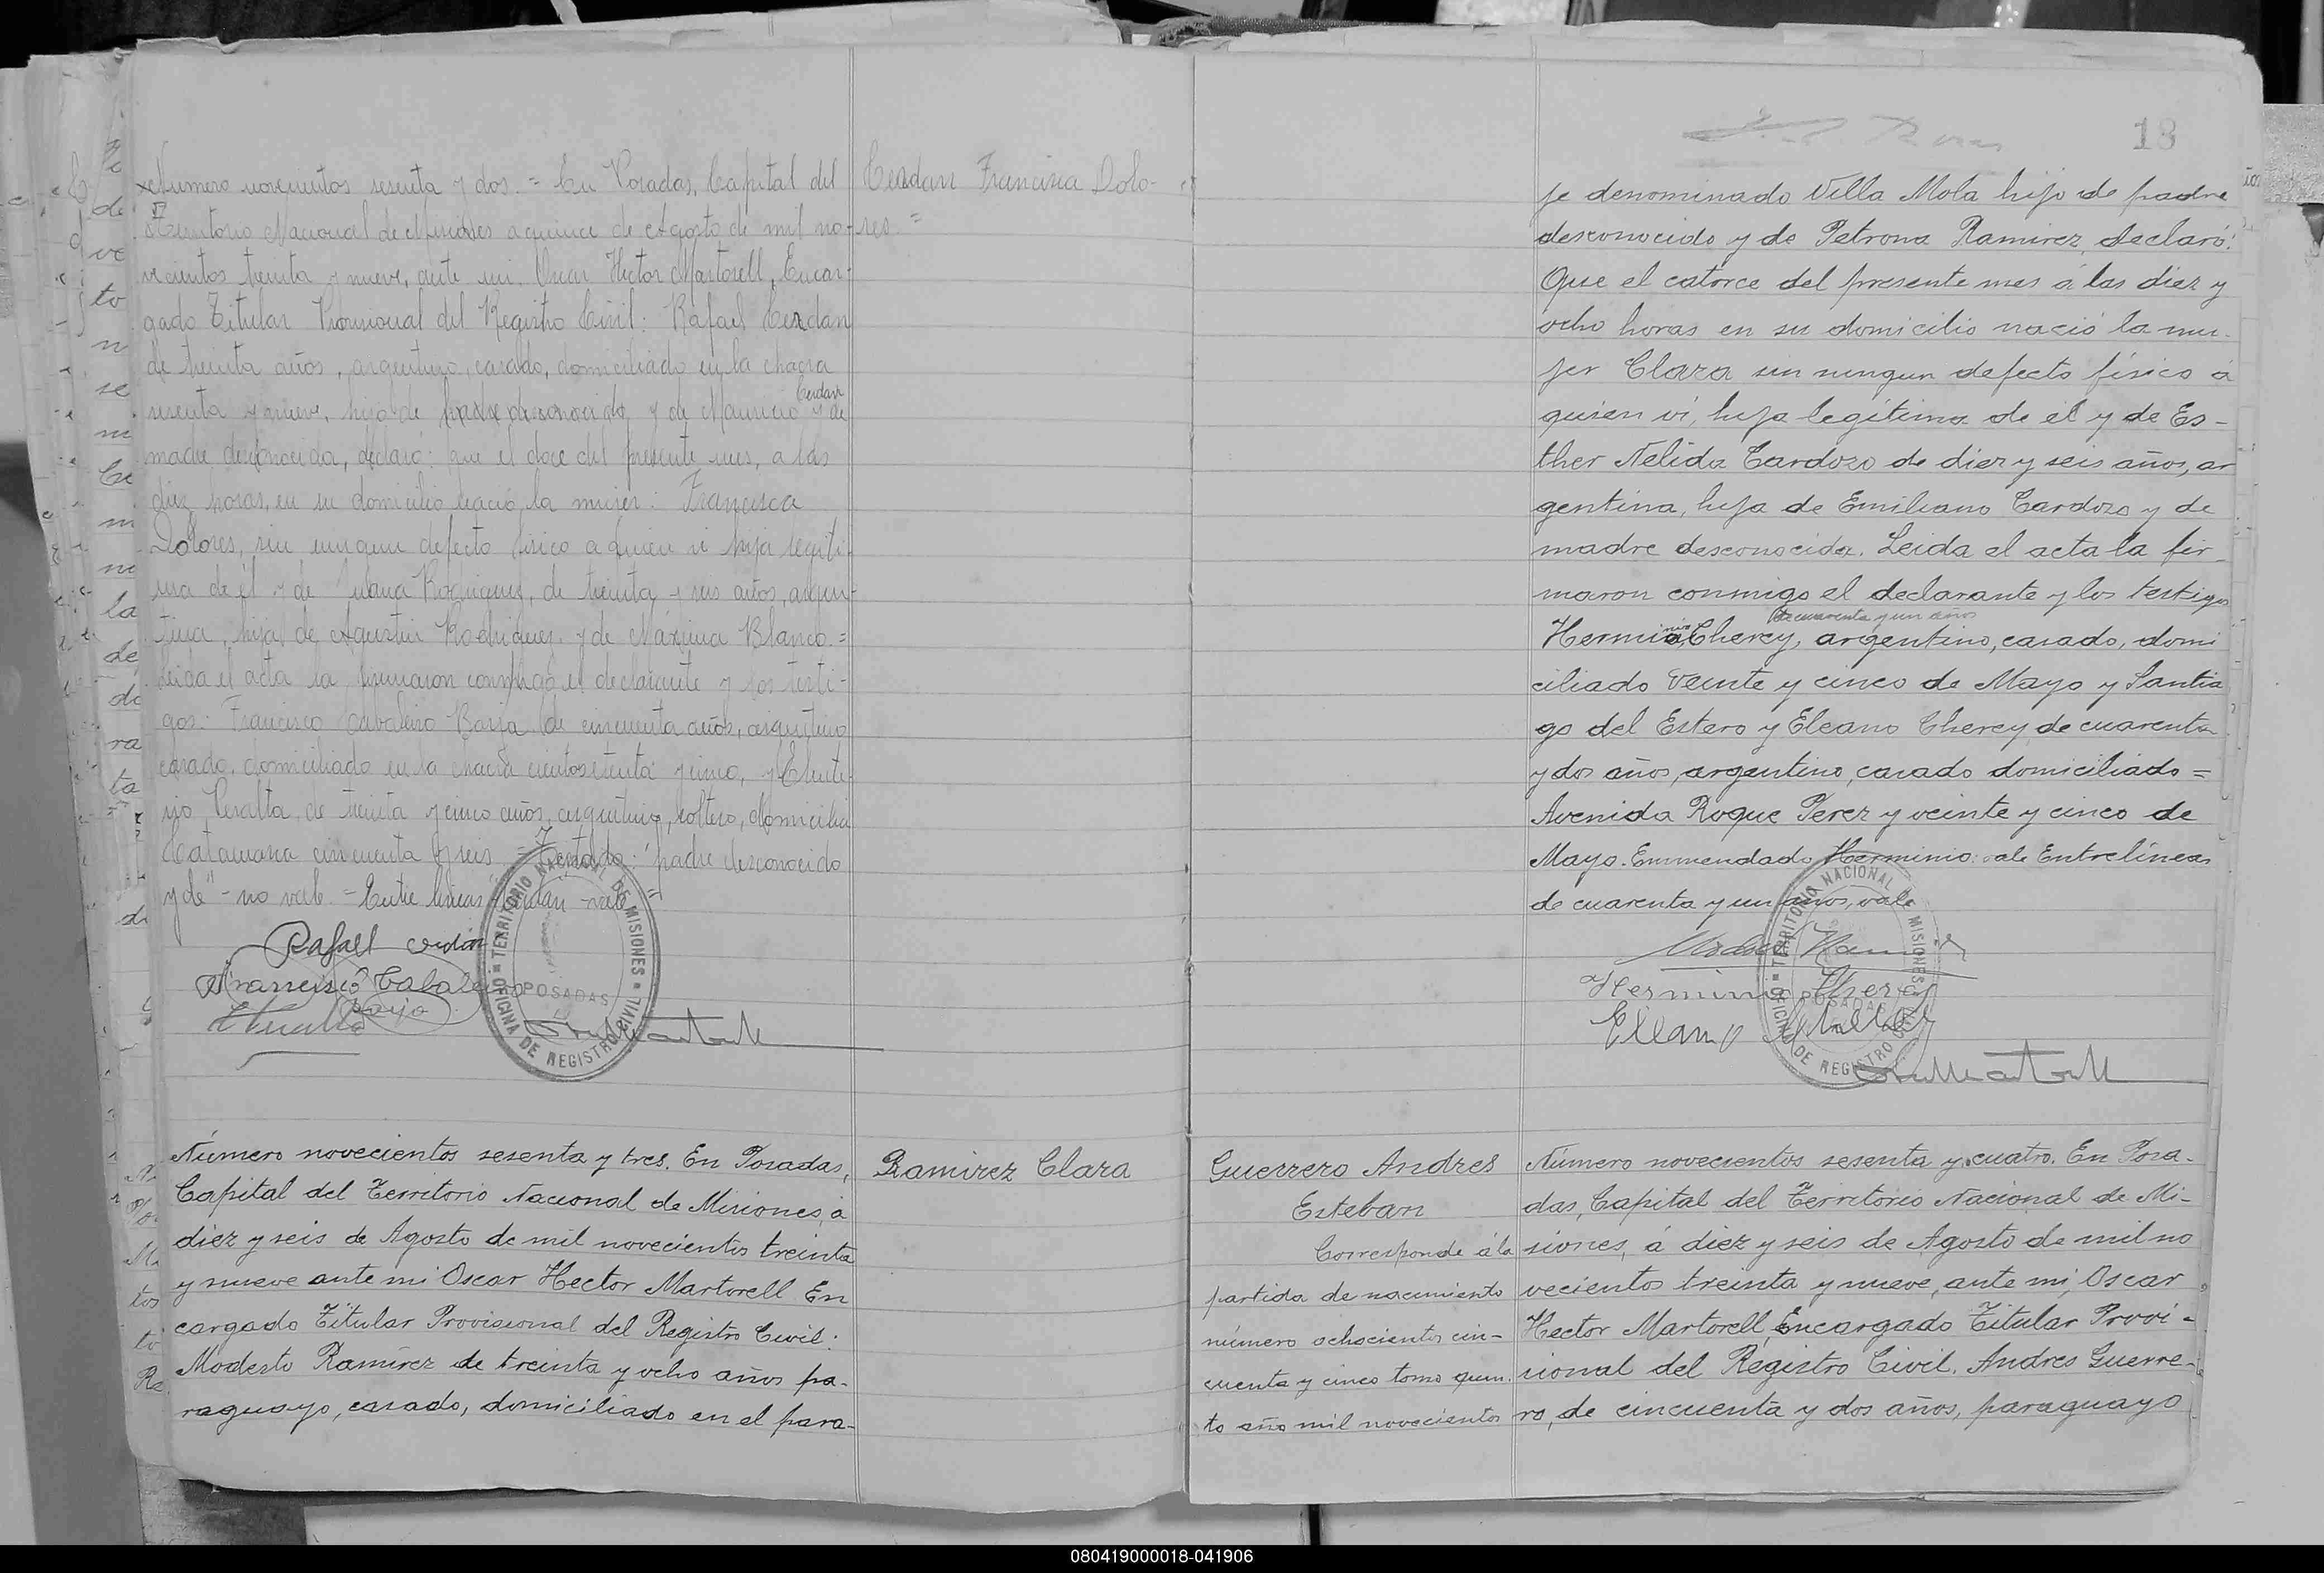 Número novecientos sesenta y dos. = En Posadas, Capital del
Territorio Nacional de Misiones a quince de Agosto de mil no-
vecientos treinta y nueve, ante mi, Oscar Hector Martorell, Encar-
gado Titular Provisional del Registro Civil: Rafael Cerdan
de treinta años, argentino, casado, domiciliado en la chacra
sesenta y nueve, hijo de padre desconocido y de Mauricio Cerdan y de
madre desconocida, declaró: que el doce del presente mes, a las
diez horas, en su domicilio nació la mujer: Francisca
Dolores, sin ningun defecto fisico a quien vi hija legiti-
ma de él y de Juana Rodriguez, de treinta y seis años, argen-
tina, hija de Agustin Rodriguez y de Máxima Blanco. =
Leida el acta la firmaron conmigo el declarante y los testi-
gos: Francisco Cabaleiro Borja de cincuenta años, argentino
casado, domiciliado en la chacra ciento setenta y cinco, y
Peralta, de treinta y cinco años, argentino, soltero, domicilia
Catamarca cincuenta y seis = Testado: "padre desconocido
y de" - no vale - Entre lineas "Cerdan - vale"
Rafael Cerdán
Francisco Cabaleiro
Borja
TERRITORIO NACIONAL DE MISIONES
POSADAS
OFICINA DE REGISTRO CIVIL
Cerdan Francisca Dolo-
res. =
Número novecientos sesenta y tres. En Posadas,
Capital del Territorio Nacional de Misiones, á
diez y seis de Agosto de mil novecientos treinta
y nueve ante mi Oscar Hector Martorell En
cargado Titular Provisional del Registro Civil:
Modesto Ramirez de treinta y ocho años pa-
raguayo, casado, domiciliado en el para-
Ramirez Clara
18
je denominado Villa Mola hijo de padre
desconocido y de Petrona Ramirez, declaró:
Que el catorce del presente mes á las diez y
ocho horas en su domicilio nació la mu-
jer Clara sin ningun defecto físico á
quien vi, hija legítima de él y de Es-
ther Nelida Cardozo de diez y seis años, ar
gentina, hija de Emiliano Cardozo y de
madre desconocida. Leida el acta la fir
maron conmigo el declarante y los testigos
Herminio Cherey, de cuarenta y un años argentino, casado, domi
ciliado veinte y cinco de Mayo y Santia
go del Estero y Eleano Cherey de cuarenta
y dos años, argentino, casado domiciliado =
Avenida Roque Perez y veinte y cinco de
Mayo. Enmendado Herminio: vale Entrelíneas
de cuarenta y un años, vale
Herminio Cherey
TERRITORIO NACIONAL DE MISIONES
POSADAS
OFICINA DE REGISTRO CIVIL
Guerrero Andres
Esteban
Corresponde á la
partida de nacimiento
número ochocientos cin-
cuenta y cinco tomo quin-
to año mil novecientos
Número novecientos sesenta y cuatro. En Posa-
das, Capital del Territorio Nacional de Mi-
siones, á diez y seis de Agosto de mil no
vecientos treinta y nueve, ante mi, Oscar
Hector Martorell, Encargado Titular Provi-
sional del Registro Civil. Andres Guerre-
ro, de cincuenta y dos años, paraguayo
080419000018-041906